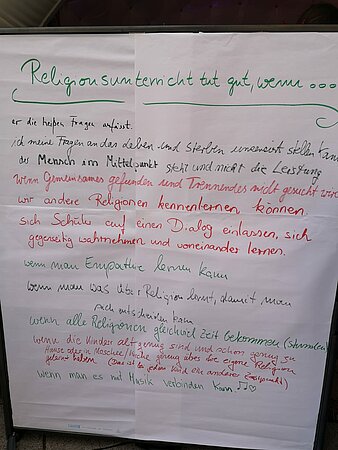 Religionsunterricht tut gut, wenn ...
er die heißen Fragen anfasst.
ich meine Fragen an das Leben und Sterben unzensiert stellen kann
der Mensch im Mittelpunkt steht und nicht die Leistung
wenn Gemeinsames gefunden und Trennendes nicht gesucht wird
wir andere Religionen kennenlernen können.
sich Schüler auf einen Dialog einlassen, sich
gegenseitig wahrnehmen und voneinander lernen.
wenn man Empathie lernen kann
wenn man was über Religion lernt, damit man
sich entscheiden kann
wenn alle Religionen gleichviel Zeit bekommen (Stunden
wenn die Kinder alt genug sind und schon genug zu
Hause oder in Moschee/Kirche genug über die eigene Religion
gelernt haben (Das ist für jedes Kind ein anderer Zeitpunkt)
wenn man es mit Musik verbinden kann ♫♡